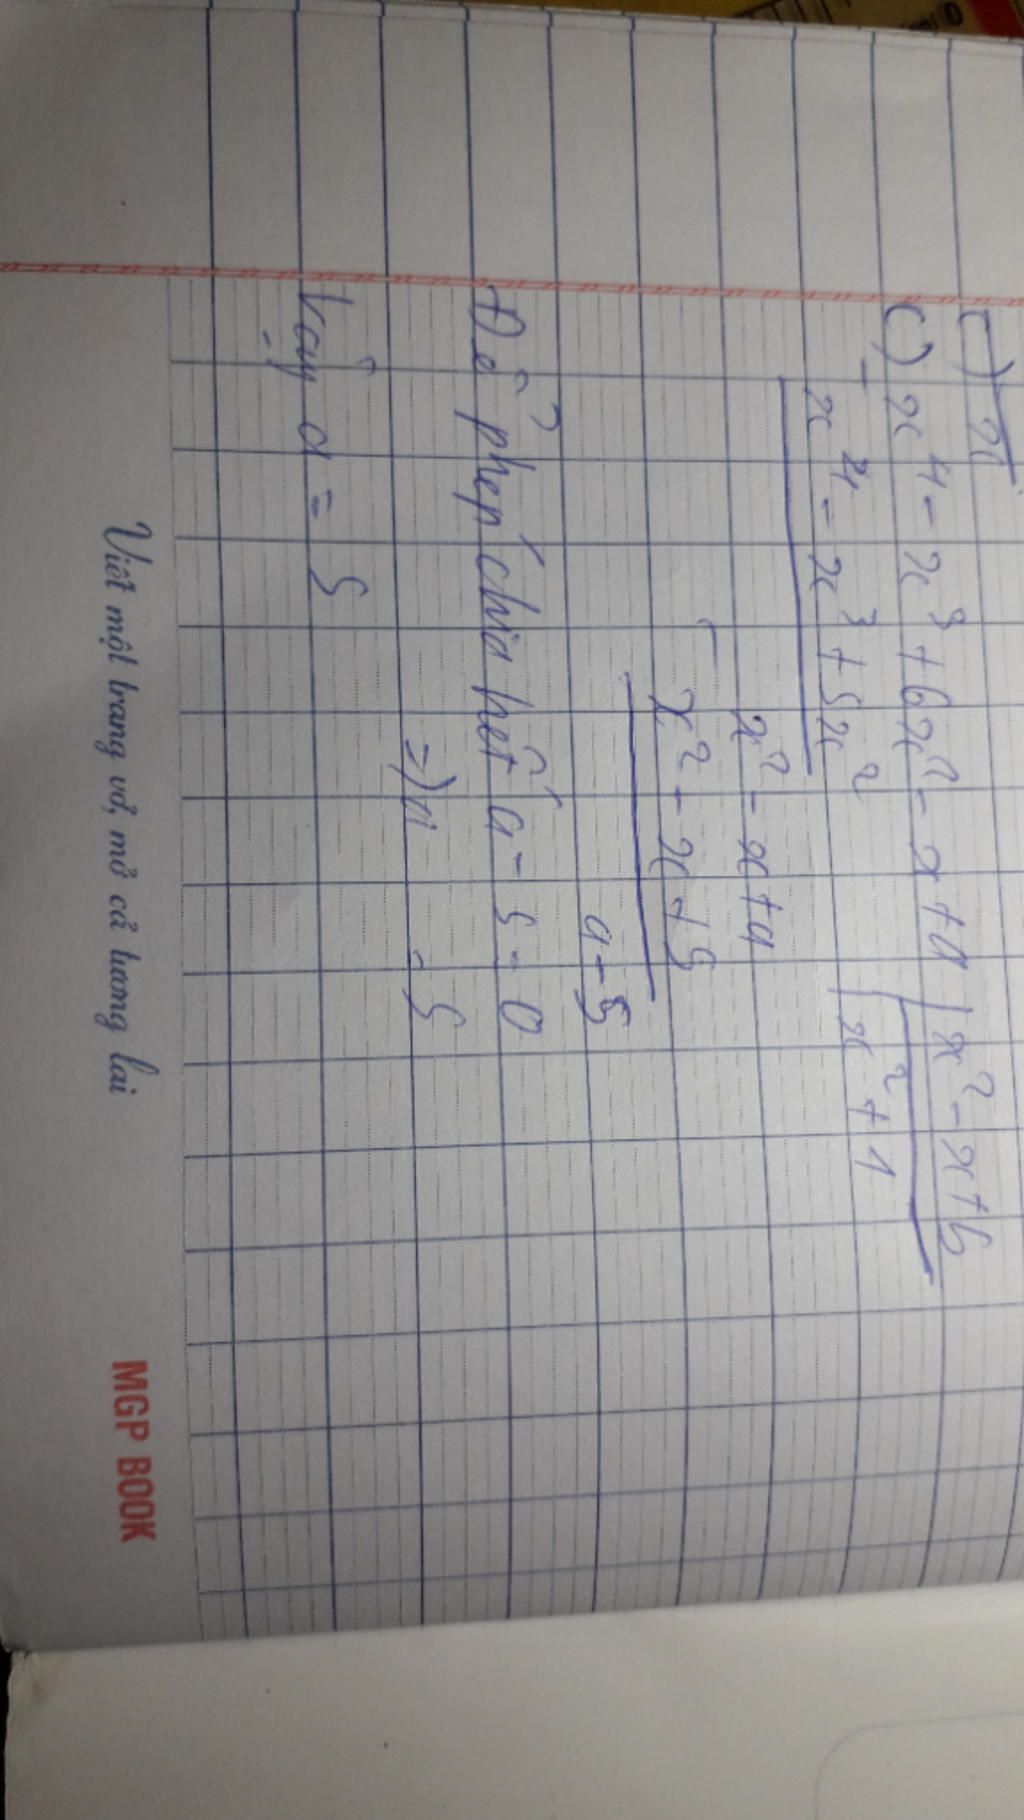 c) x⁴ - x³ + 6x² - x + a | x² - x + 5
x⁴ - x³ + 5x² | x² + 1
x² - x + a
x² - x + 5
a - 5
Để phép chia hết a - 5 = 0
=> a = 5
Vậy a = 5
Viết một trang vở, mở cả tương lai
MGP BOOK